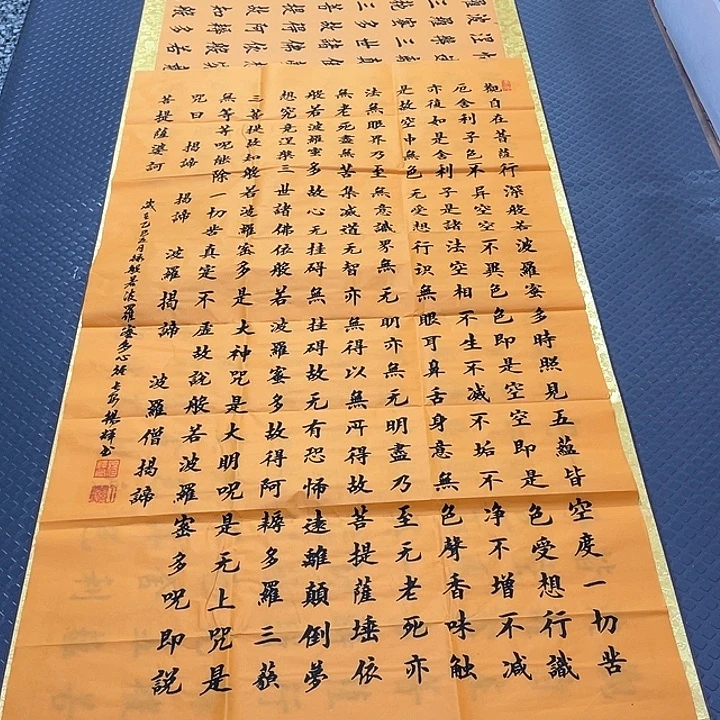 觀自在菩薩行深般若波羅蜜多時照見五蘊皆空度一切苦
厄舍利子色不異空空不異色色即是空空即是色受想行識
亦復如是舍利子是諸法空相不生不滅不垢不净不增不减
是故空中無色无受想行识無眼耳鼻舌身意無色聲香味触
法無眼界乃至無意識界無无明亦無无明盡乃至无老死亦
無老死盡無苦集滅道无智亦無得以無所得故菩提薩埵依
般若波羅蜜多故心无挂碍無挂碍故无有恐怖遠離顛倒夢
想究竟涅槃三世諸佛依般若波羅蜜多故得阿耨多羅三藐
三菩提故知般若波羅蜜多是大神咒是大明呪是无上咒是
無等等呪能除一切苦真定不虛故説般若波羅蜜多呪即説
咒曰 揭諦 揭諦 波羅揭諦 波羅僧揭諦
菩提薩婆訶
乙巳五月 般若波羅蜜多心經 輝书